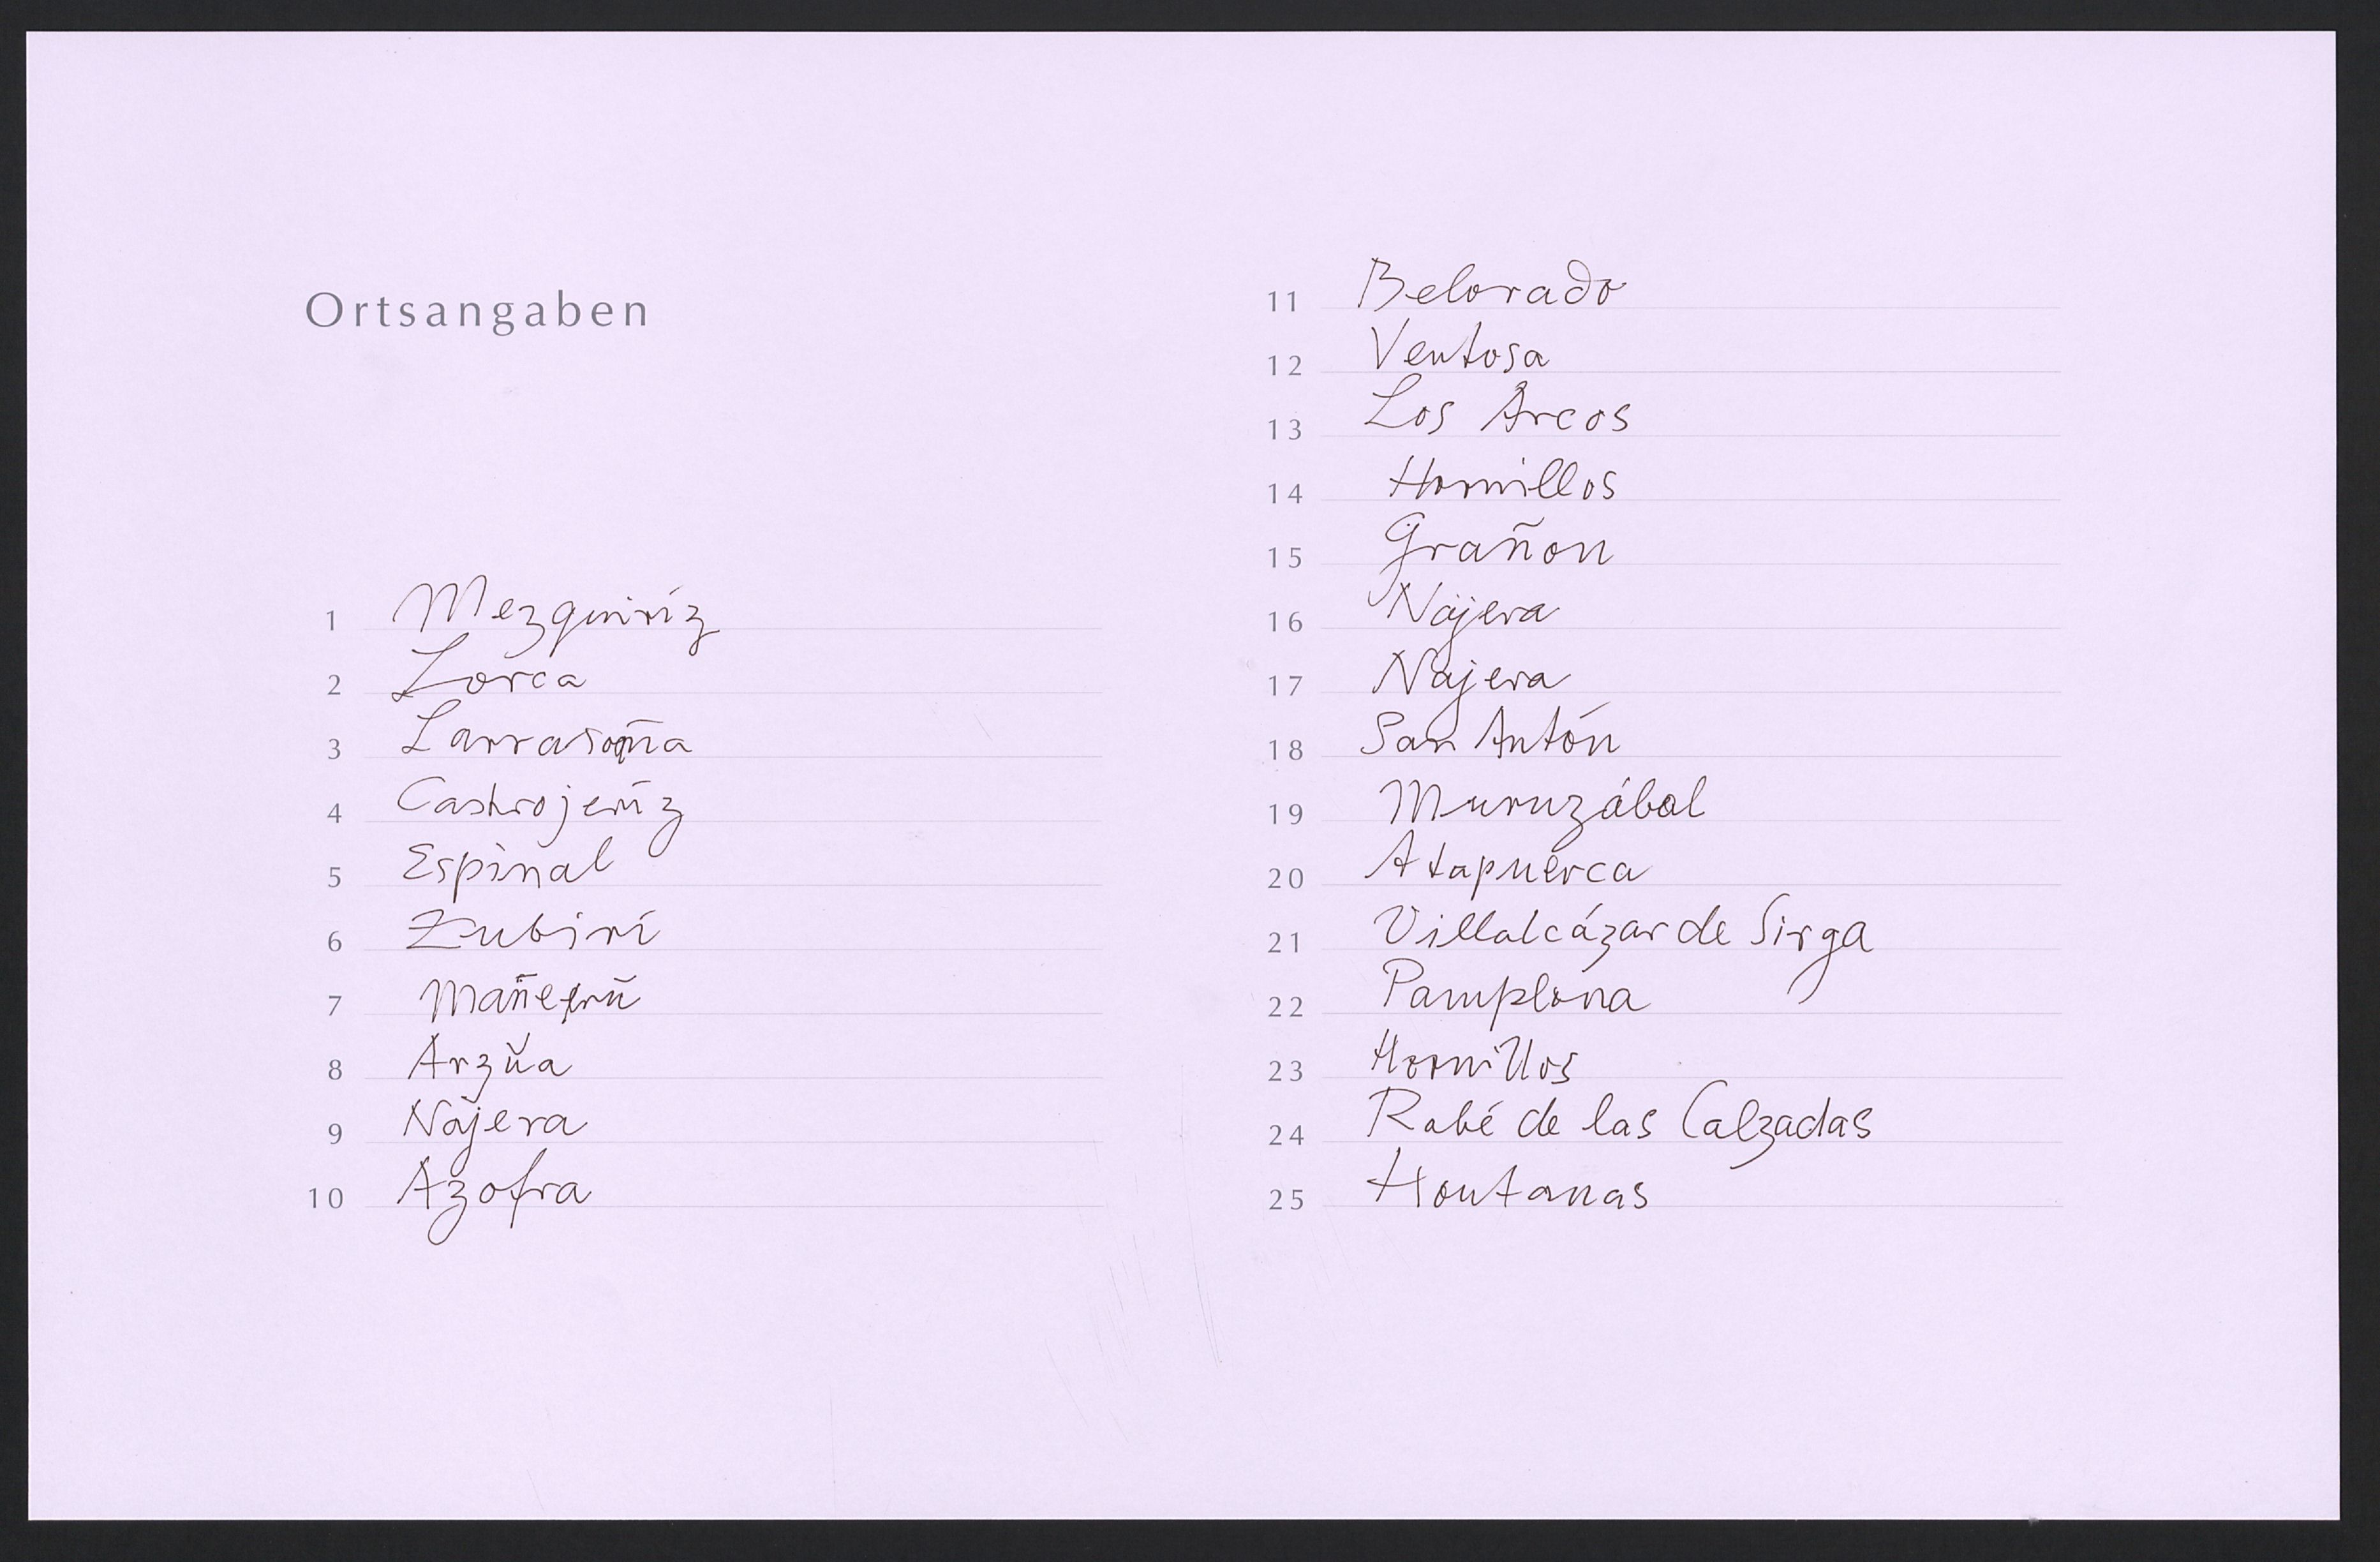 Ortsangaben
1 Mezquiríz
2 Lorca
3 Larrasoña
4 Castrojeríz
5 Espinal
6 Zubirí
7 Mañeru
8 Arzúa
9 Nájera
10 Azofra
11 Belorado
12 Ventosa
13 Los Arcos
14 Hornillos
15 Grañon
16 Nájera
17 Nájera
18 San Antón
19 Muruzábal
20 Atapuerca
21 Villalcázar de Sirga
22 Pamplona
23 Hornillos
24 Rabé de las Calzadas
25 Hontanas